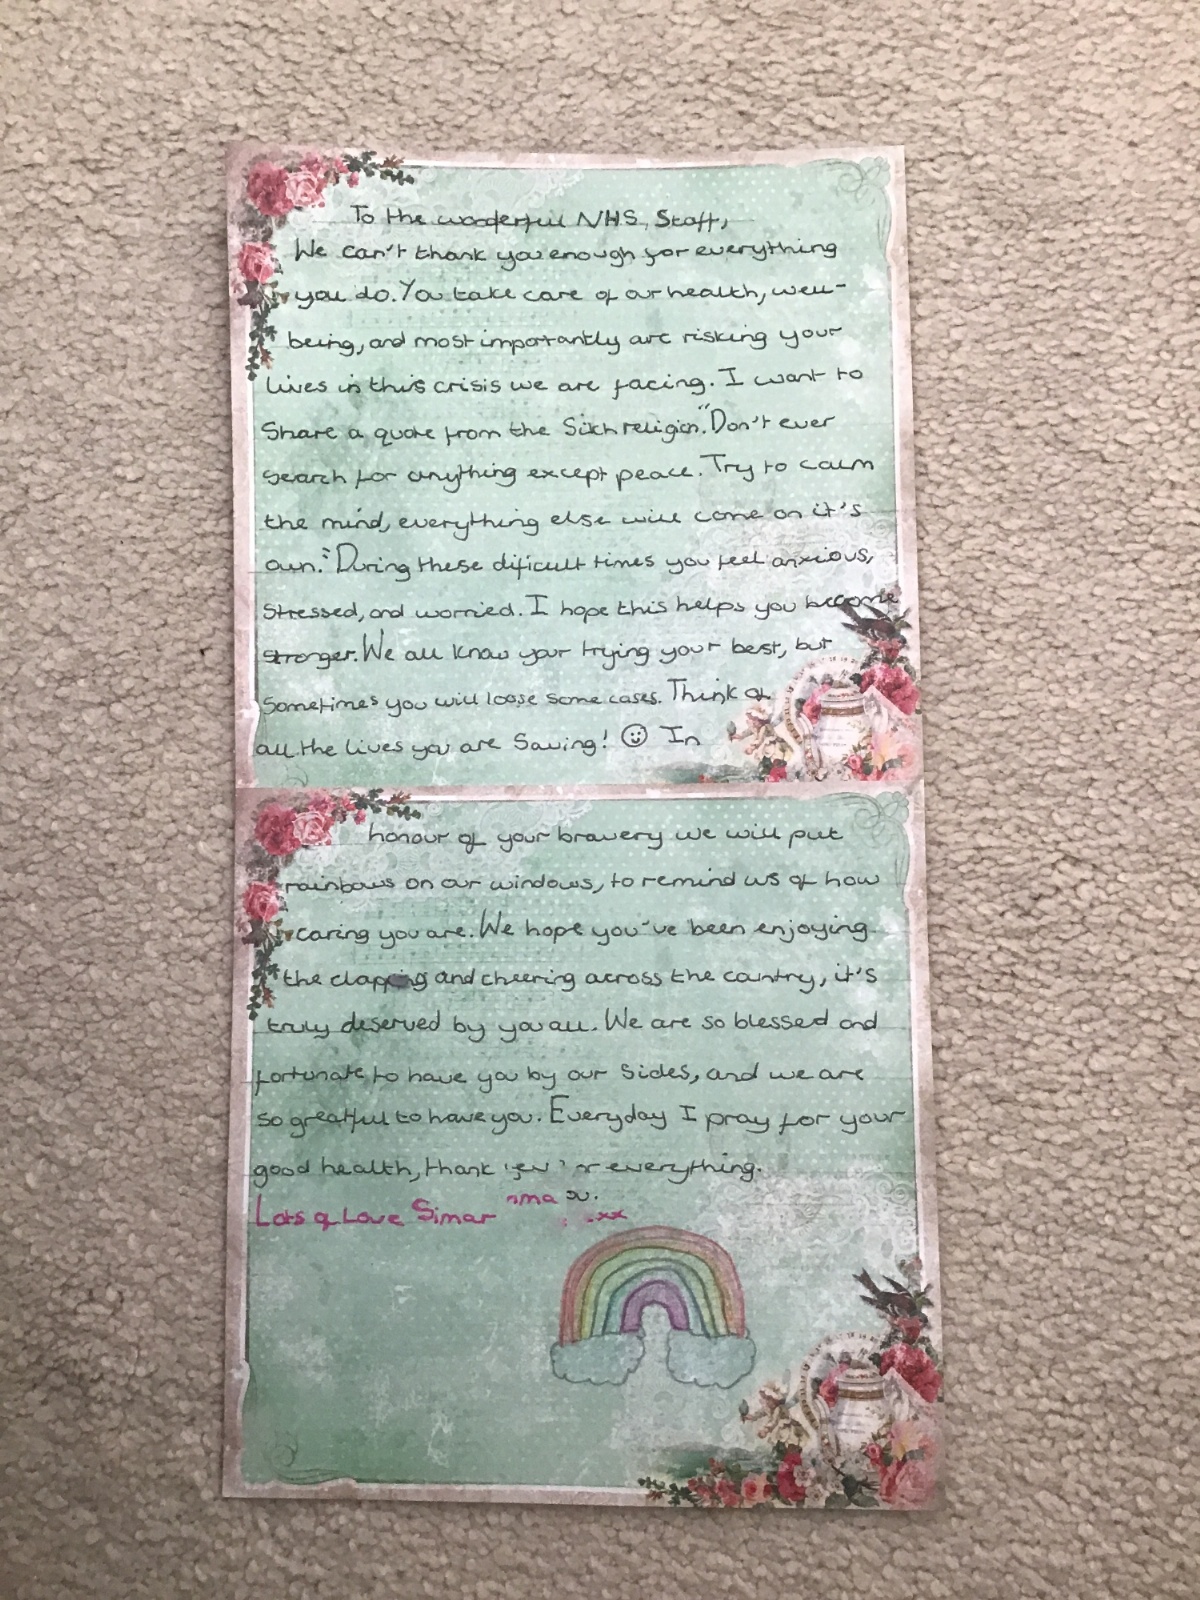 To the wonderful NHS, Staff,
We can't thank you enough for everything
you do. You take care of our health, well-
being, and most importantly are risking your
lives in this crisis we are facing. I want to
Share a quote from the Sikh religion. "Don't ever
search for anything except peace. Try to calm
the mind, everything else will come on it's
own." During these dificult times you feel anxious,
Stressed, and worried. I hope this helps you become
stronger. We all know your trying your best, but
Sometimes you will loose some cases. Think of
all the lives you are Saving! ☺ In
honour of your bravery we will put
rainbows on our windows, to remind us of how
caring you are. We hope you've been enjoying
the clapping and cheering across the country, it's
truly deserved by you all. We are so blessed and
fortunate to have you by our Sides, and we are
so greatful to have you. Everyday I pray for your
good health, thank everything.
Lots of Love Simar
xx